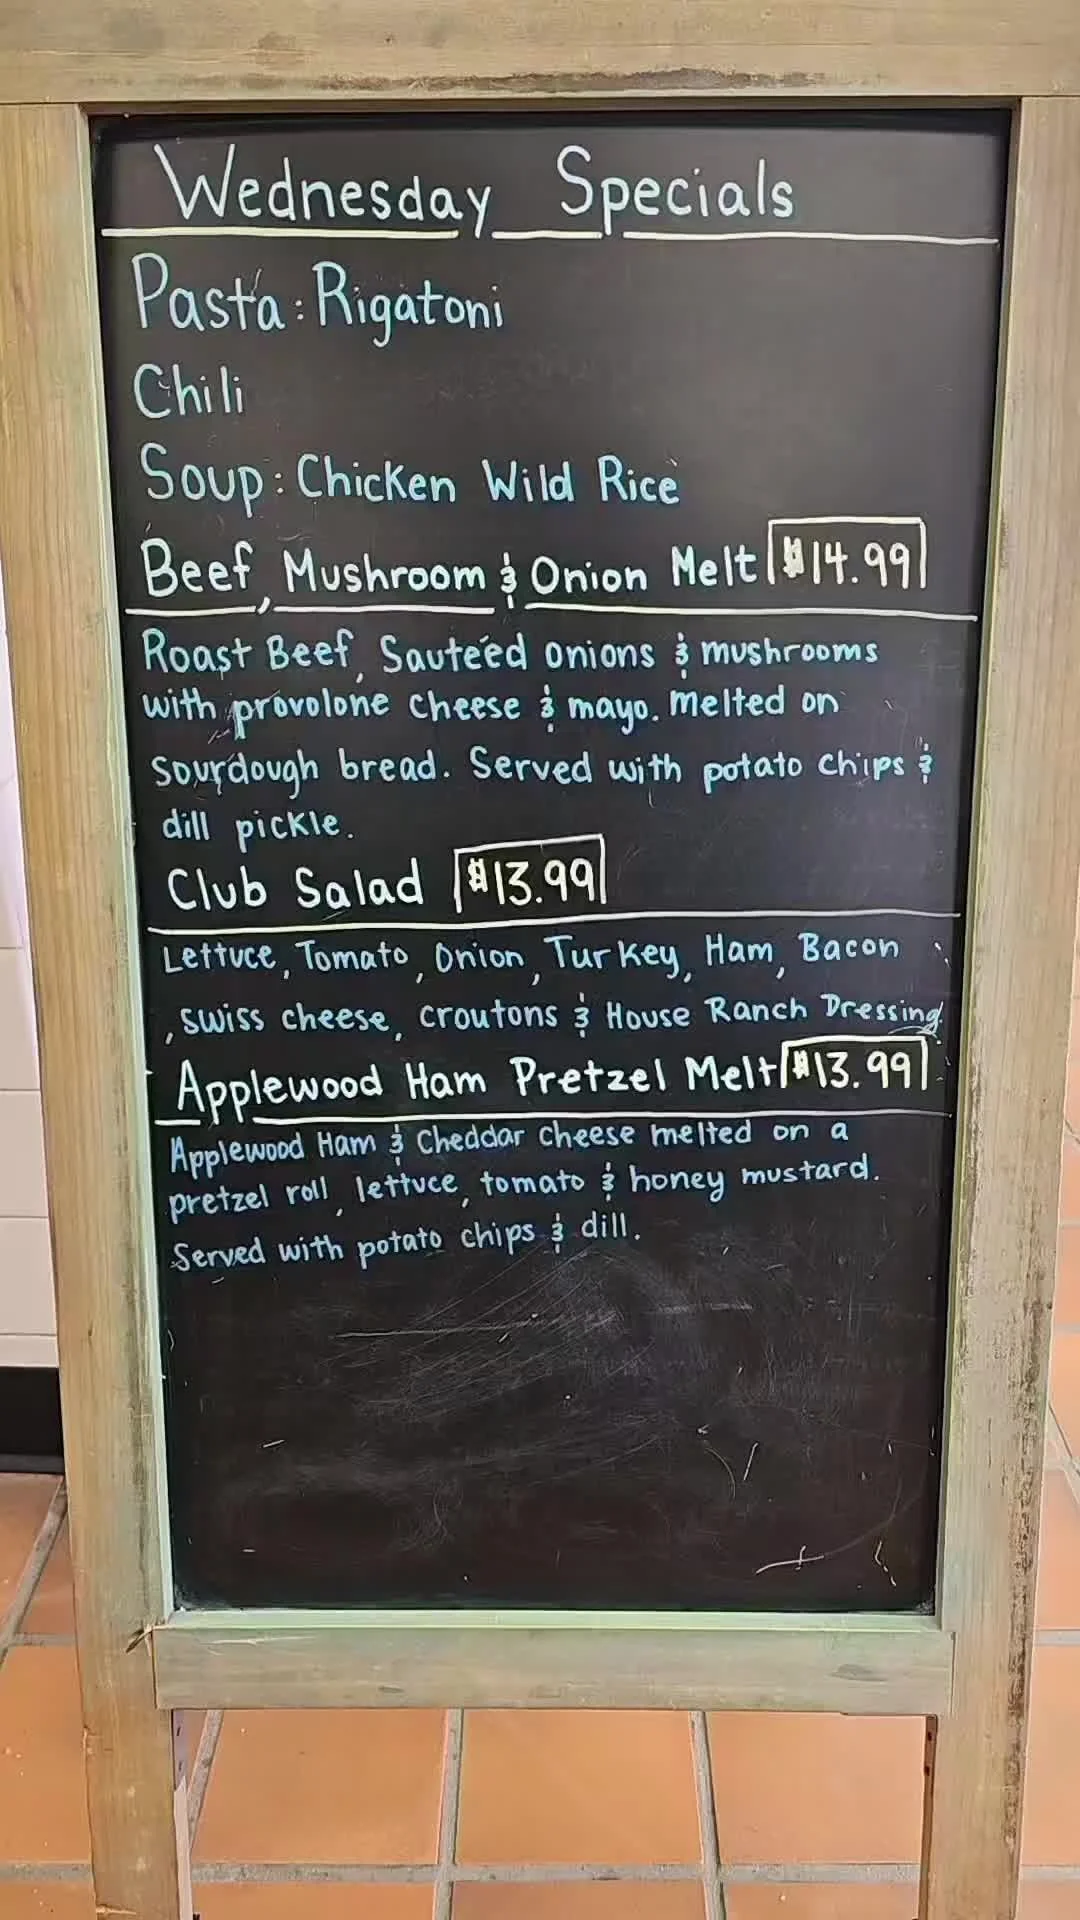 Wednesday Specials
Pasta: Rigatoni
Chili
Soup: Chicken Wild Rice
Beef, Mushroom & Onion Melt $14.99
Roast Beef, Sauteéd onions & mushrooms
with provolone cheese & mayo. melted on
sourdough bread. Served with potato chips &
dill pickle.
Club Salad $13.99
Lettuce, Tomato, Onion, Turkey, Ham, Bacon
, swiss cheese, croutons & House Ranch Dressing.
Applewood Ham Pretzel Melt $13.99
Applewood Ham & Cheddar cheese melted on a
pretzel roll, lettuce, tomato & honey mustard.
Served with potato chips & dill.